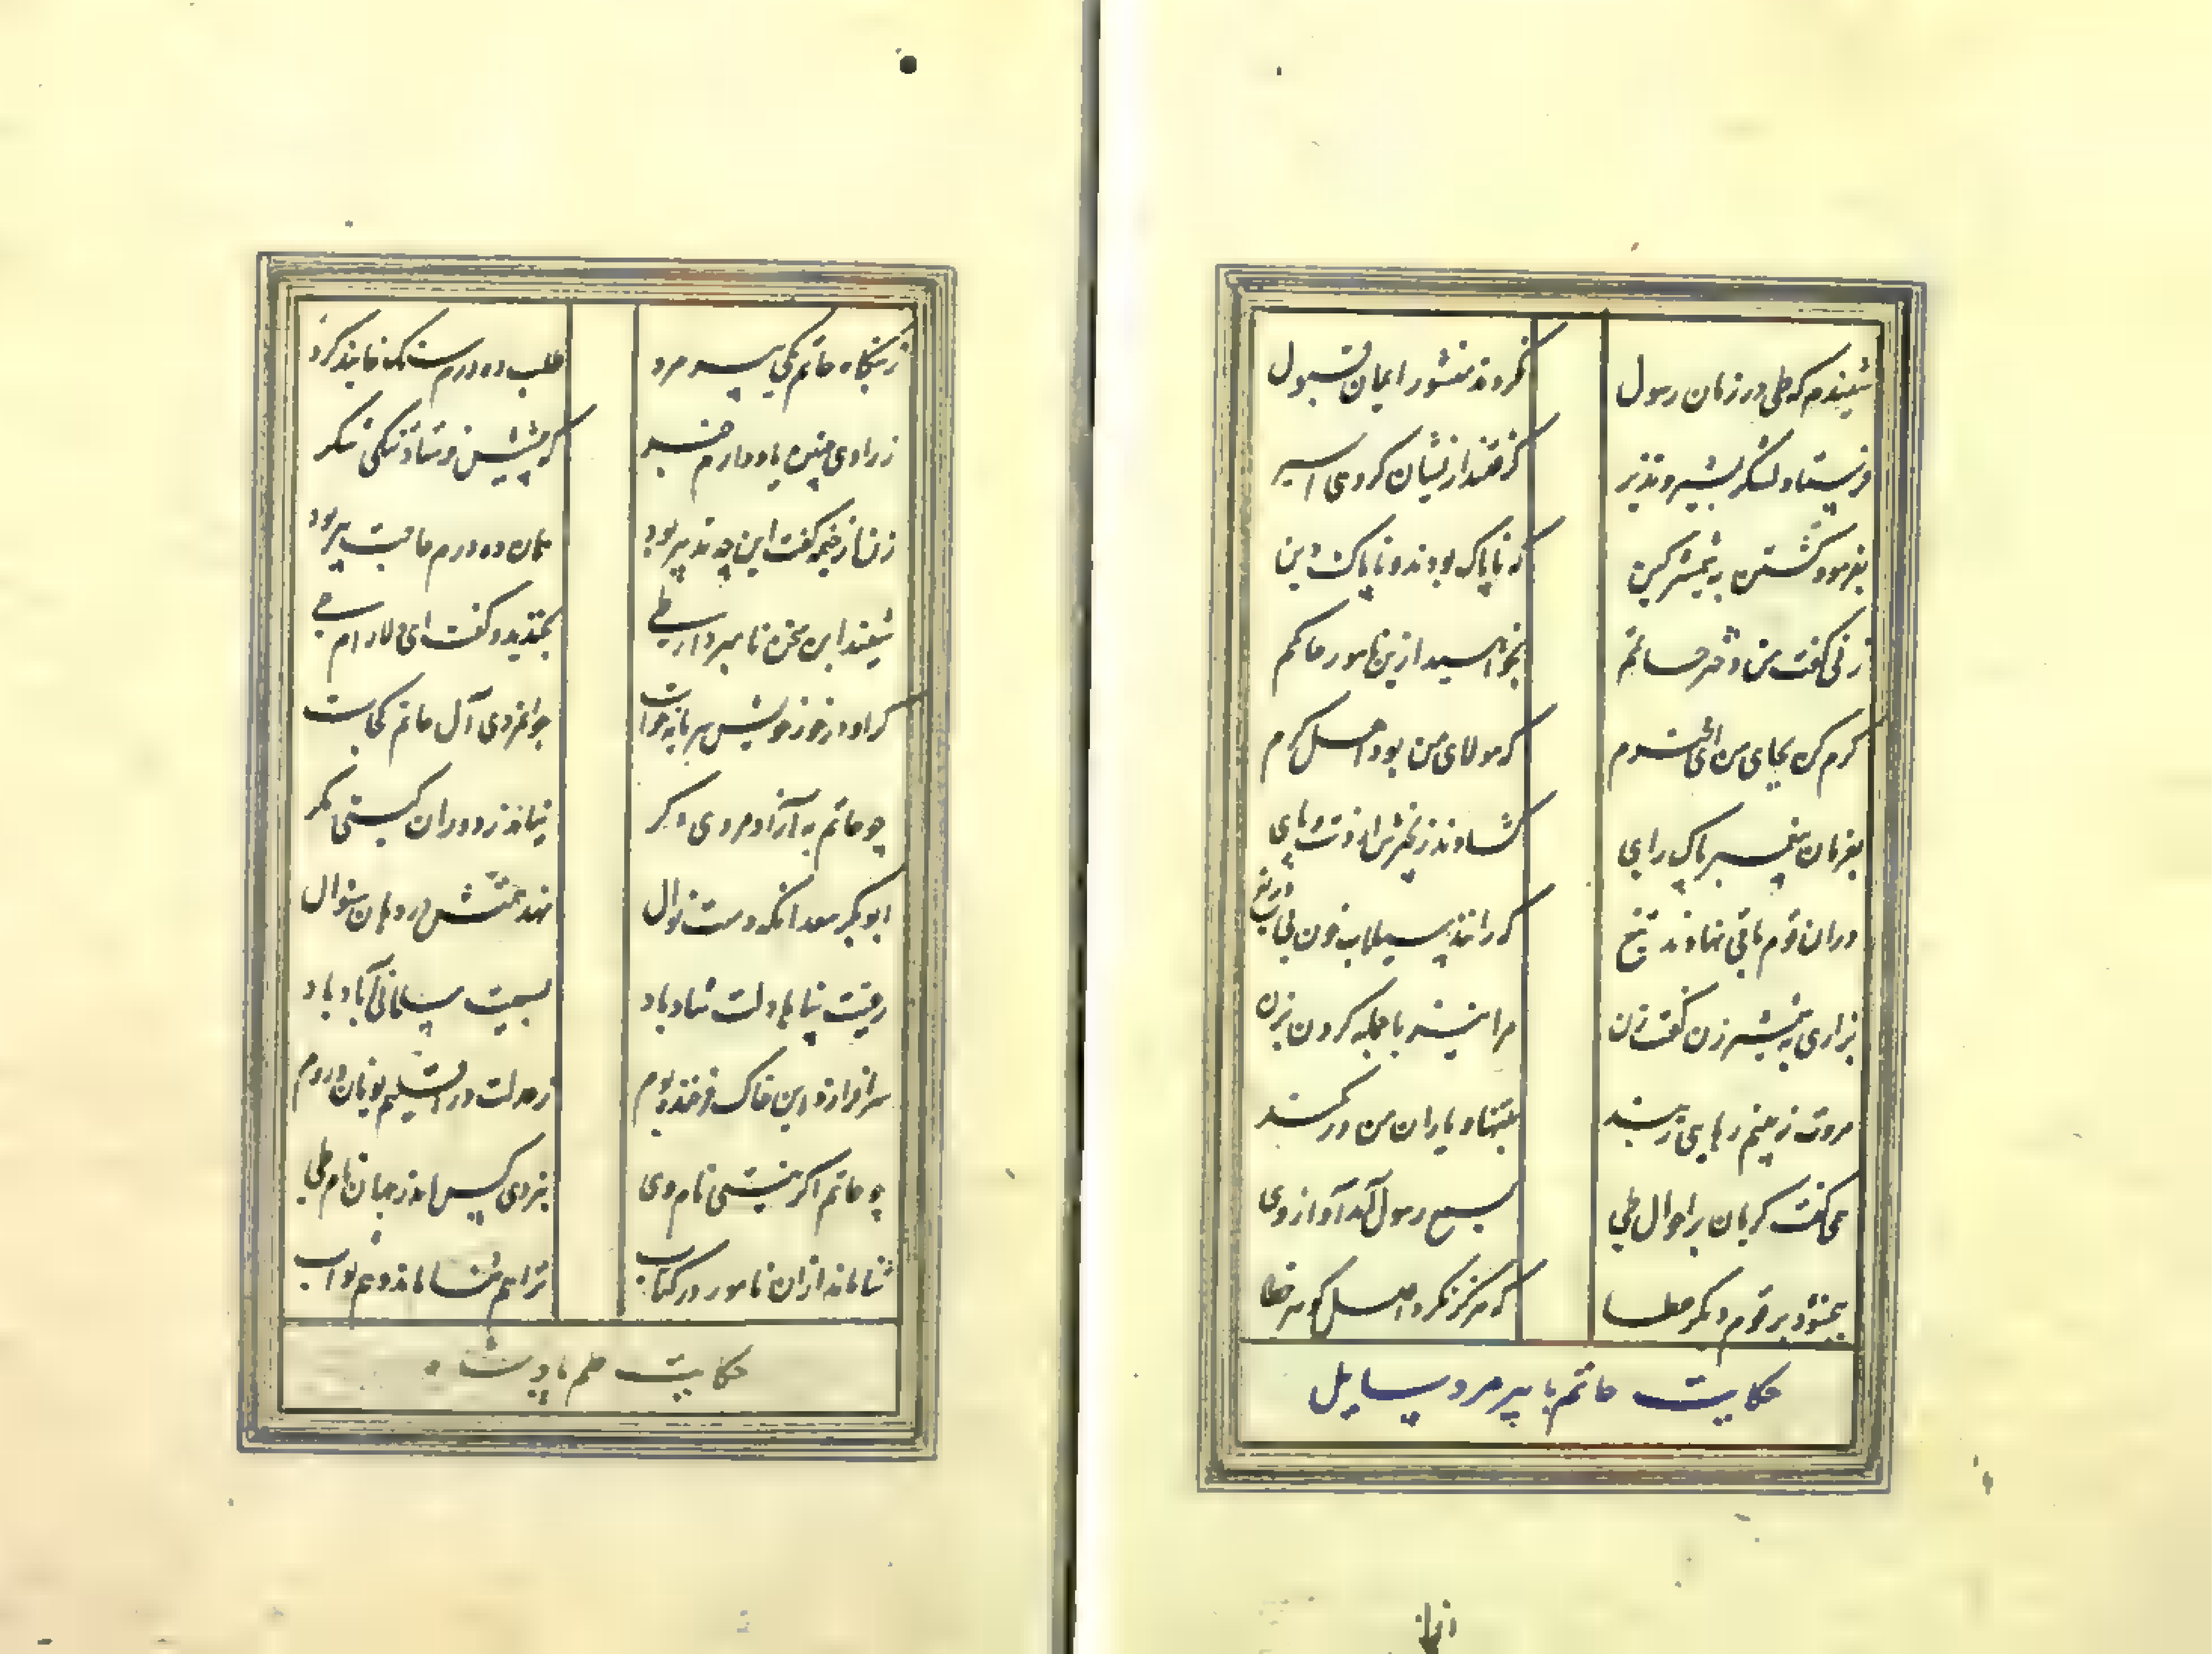 شنیدم که طی در زمان رسول نکردند منشور ایمان قبول
فرستاد لشکر بشیر و نذیر گرفتند ازیشان گروهی اسیر
بفرمود کشتن به شمشیر کین که ناپاک بودند و ناپاک دین
زنی گفت من دختر حاتمم بخواهید ازین نامور حاکمم
کرم کن بجای من ای محترم که مولای من بود اهل کرم
بفرمان پیغمبر پاک رای گشادند زنجیرش از دست و پای
دران قوم باقی نهادند تیغ که رانند سیلاب خون بی دریغ
بزاری به شمشیر زن گفت زن مرا نیز با جمله گردن بزن
مروت نبینم رهایی ز بند بتنها و یاران من در کمند
همی گفت گریان بر احوال طی بسمع رسول آمد آواز وی
ببخشود بر قوم و دیگر عطا که هرگز نکرد اصل گوهر خطا
حکایت حاتم با پیرمرد سایل
ز بنگاه حاتم یکی پیرمرد طلب ده درم سنگ فانیذ کرد
ز راوی چنین یاد دارم خبر که پیشش فرستاد تنگی شکر
زن از خیمه گفت این چه تدبیر بود همان ده درم حاجت پیر بود
شنید این سخن نامبردار طی بخندید و گفت ای دلارام حی
گر او در خور خویش حاجت خواست جوانمردی آل حاتم کجاست
چو حاتم به آزادمردی دگر نیاید ز دوران گیتی مگر
ابوبکر سعد آنکه دست نوال نهد همتش در دهان سؤال
رعیت پناها دلت شاد باد بسعیت مسلمانی آباد باد
سرافرازد این خاک فرخنده بوم ز عدلت در اقلیم یونان و روم
چو حاتم اگر نیستی نام وی نبردی کس اندر جهان نام طی
ثنا ماند ازان نامور در کتاب ترا هم ثنا ماند و هم ثواب
حکایت پادشاه